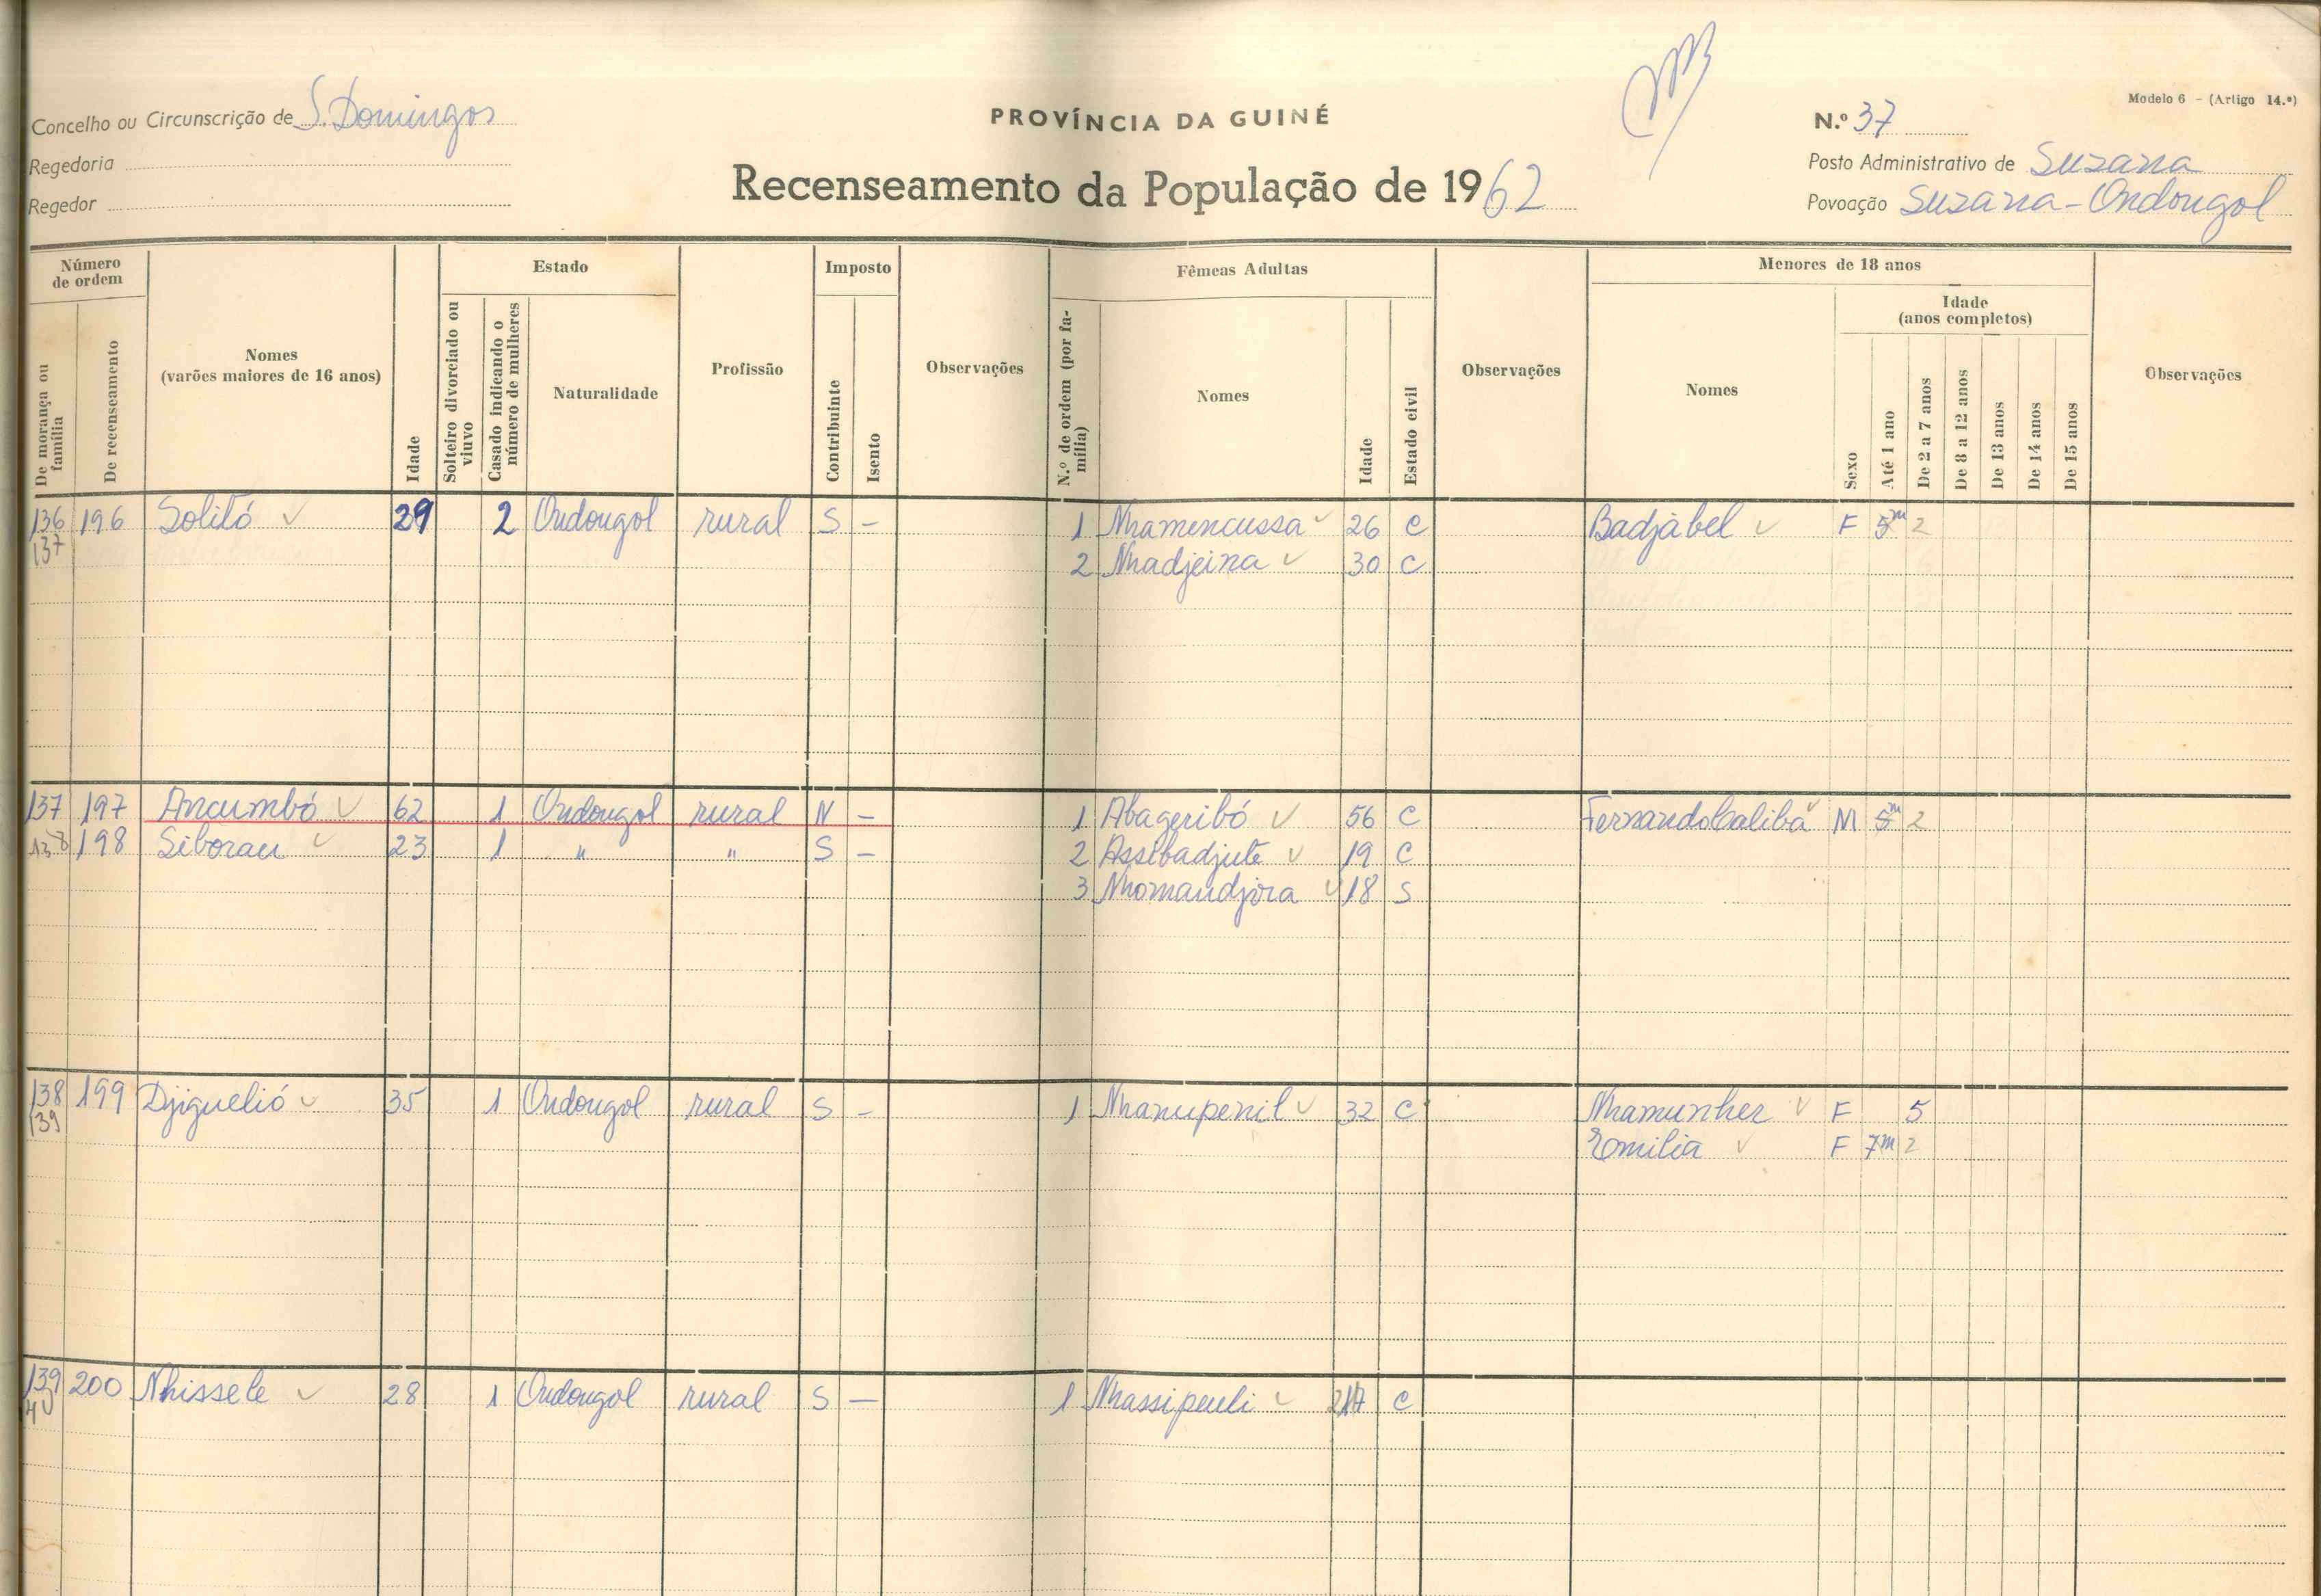 Concelho ou Circunscrição de S. Domingos
Regedoria
Regedor
PROVÍNCIA DA GUINÉ
Recenseamento da População de 1962
Modelo 6 - (Artigo 14.º)
N.º 37
Posto Administrativo de Suzana
Povoação Suzana-Ondougol
Número de ordem
De morança ou família
De recenseamento
Nomes
(varões maiores de 16 anos)
Idade
Estado
Solteiro divorciado ou viuvo
Casado indicando o número de mulheres
Naturalidade
Profissão
Imposto
Contribuinte
Isento
Observações
Fêmeas Adultas
N.º de ordem (por família)
Nomes
Idade
Estado civil
Observações
Menores de 18 anos
Nomes
Idade
(anos completos)
Sexo
Até 1 ano
De 2 a 7 anos
De 8 a 12 anos
De 13 anos
De 14 anos
De 15 anos
Observações
136 196 Solitó 29 2 Ondougol rural S - 1 Nhamencussa 26 C Badjábel F 5m 2
137 2 Nhadjeina 30 C
137 197 Ancumbó 62 1 Ondougol rural N - 1 Abageribó 56 C Fernando Calibá M 5m 2
138 198 Siborau 23 1 " " S - 2 Assibadjute 19 C
3 Nhomandjora 18 S
138 199 Djiguelió 35 1 Ondougol rural S - 1 Nhanupenil 32 C Nhamunhez F 5
139 Emilia F 7m 2
139 200 Nhissele 28 1 Ondougol rural S - 1 Nhassipeuli C
40